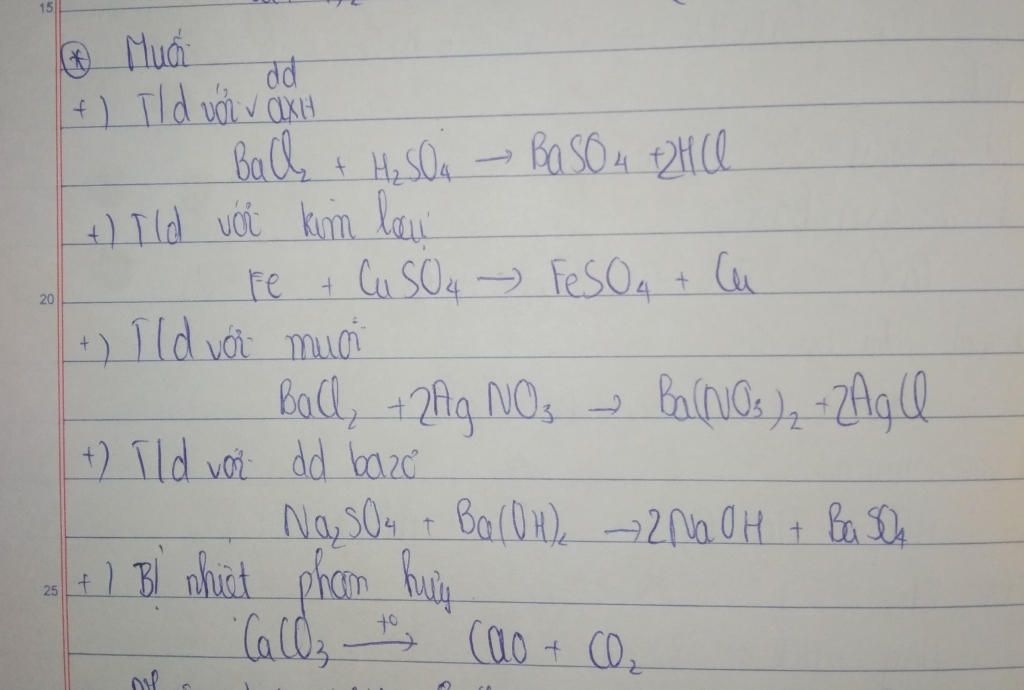 15
* Muối
+) T/d với dd axit
BaCl₂ + H₂SO₄ → BaSO₄ + 2HCl
+) T/d với kim loại
Fe + CuSO₄ → FeSO₄ + Cu
20
+) T/d với muối
BaCl₂ + 2AgNO₃ → Ba(NO₃)₂ + 2AgCl
+) T/d với dd bazơ
Na₂SO₄ + Ba(OH)₂ → 2NaOH + BaSO₄
25
+) Bị nhiệt phân hủy
CaCO₃ t° → CaO + CO₂